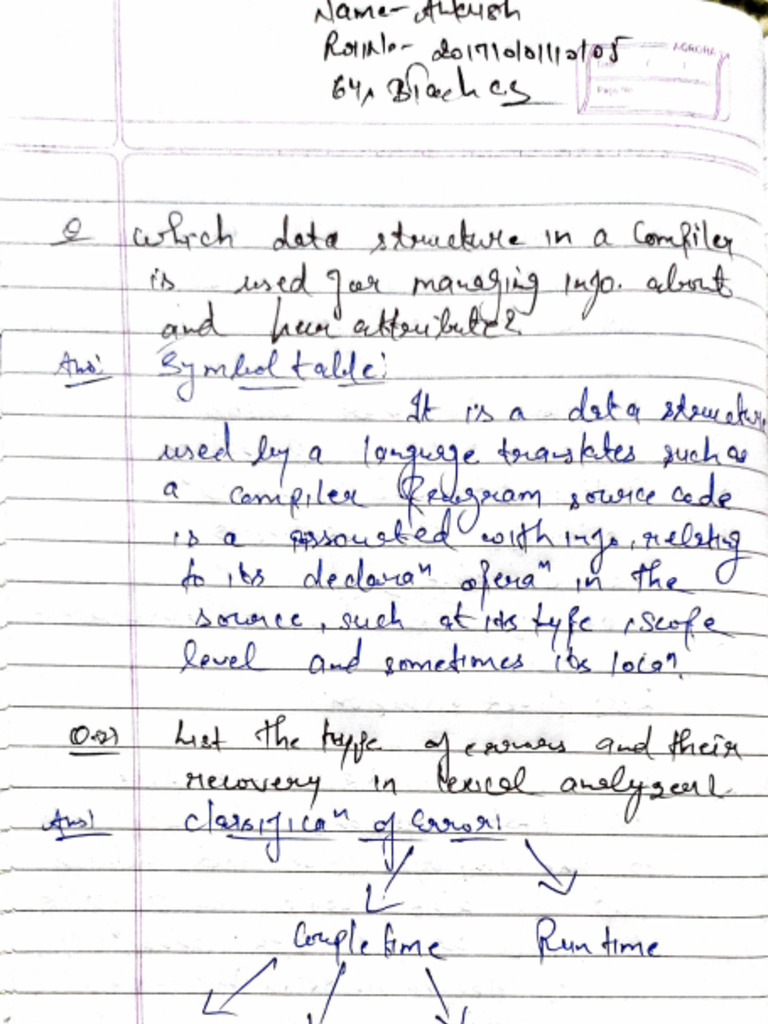 Name- Ankush
Roll No- 201710101110105
6th Btech CS
AGROHA
Page No.
Q which data structure in a Compiler
is used for managing info. about
and heir attributes?
Ans: Symbol table:
It is a data structure
used by a language translates such as
a compiler Program source code
is a assosiated with info. relating
to its declaraⁿ operaⁿ in the
source, such at its type, scope
level and sometimes its locaⁿ.
Q.2) List the type of errors and their
recovery in lexical analyzer?
Ans) classificaⁿ of Error:
Comple time Run time